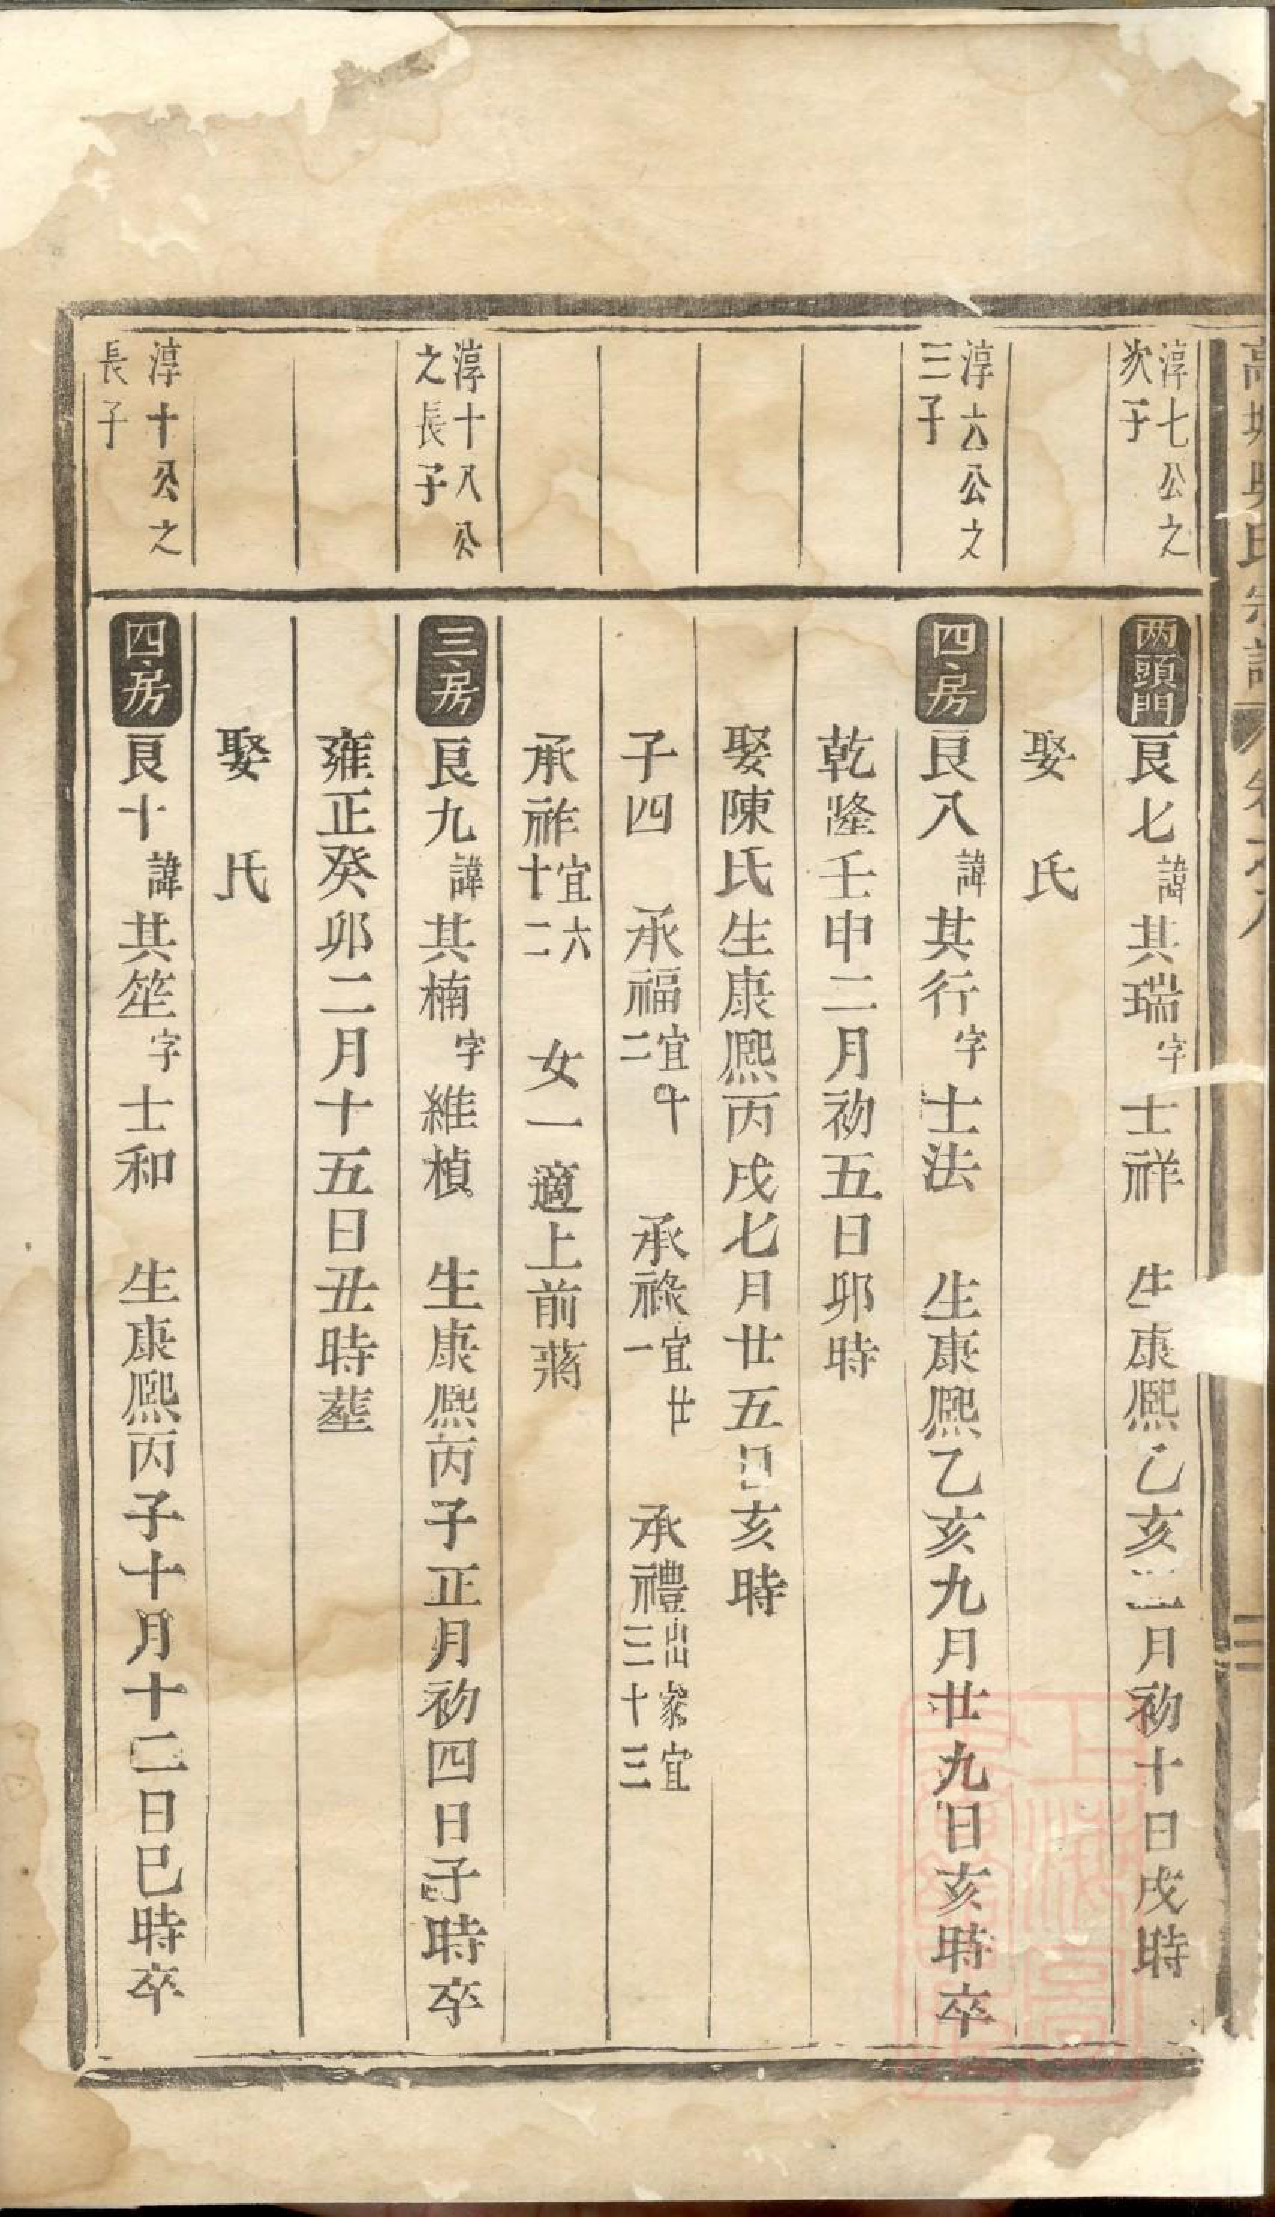 高塘吳氏宗譜
淳七公之
次子
兩頭門
良七諱其瑞字士祥 生康熙乙亥二月初十日戌時
娶 氏
淳六公之
三子
四房
良八諱其行字士法 生康熙乙亥九月廿九日亥時卒
乾隆壬申二月初五日卯時
娶陳氏生康熙丙戌七月廿五日亥時
子四 承福宜十二 承祿宜廿一 承禮出家宜三十三
承祚宜六十二 女一適上前蔣
淳十八公
之長子
三房
良九諱其楠字維楨 生康熙丙子正月初四日子時卒
雍正癸卯二月十五日丑時塟
娶 氏
淳十公之
長子
四房
良十諱其笙字士和 生康熙丙子十月十二日巳時卒